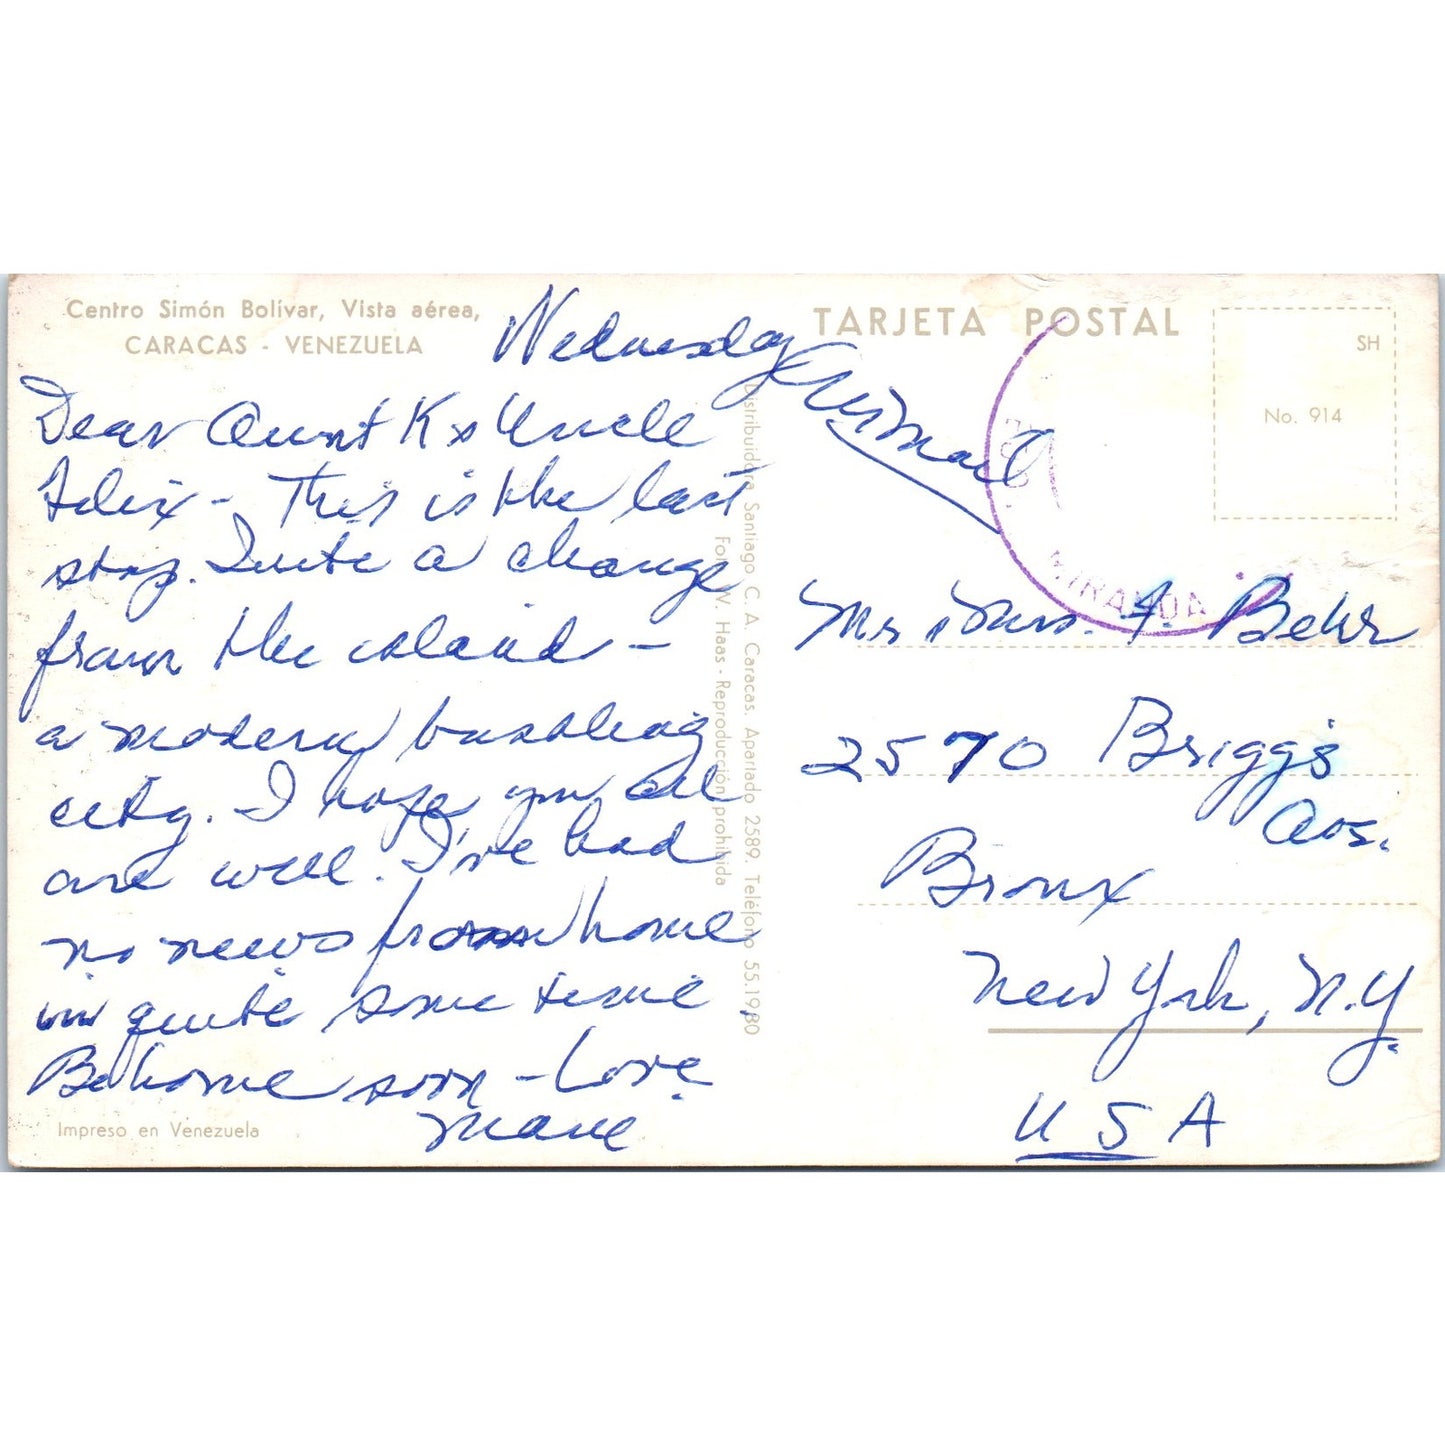 Centro Simón Bolívar, Vista aérea,
CARACAS - VENEZUELA
Wednesday
Dear Aunt K & Uncle
Felix - This is the last
stop. Quite a change
from the island -
a modern bustling
city. I hope you all
are well. I've had
no news from home
in quite some time.
Be home soon - Love
Impreso en Venezuela
Distribuidora Santiago C. A. Caracas. Apartado 2589. Teléfono 55.19.80
Foto W. Haas - Reproducción prohibida
TARJETA POSTAL
Air Mail
SH
No. 914
MIRANDA
Mr & Mrs. F. Behr
2570 Briggs
Ave.
Bronx
New York, N.Y.
U S A